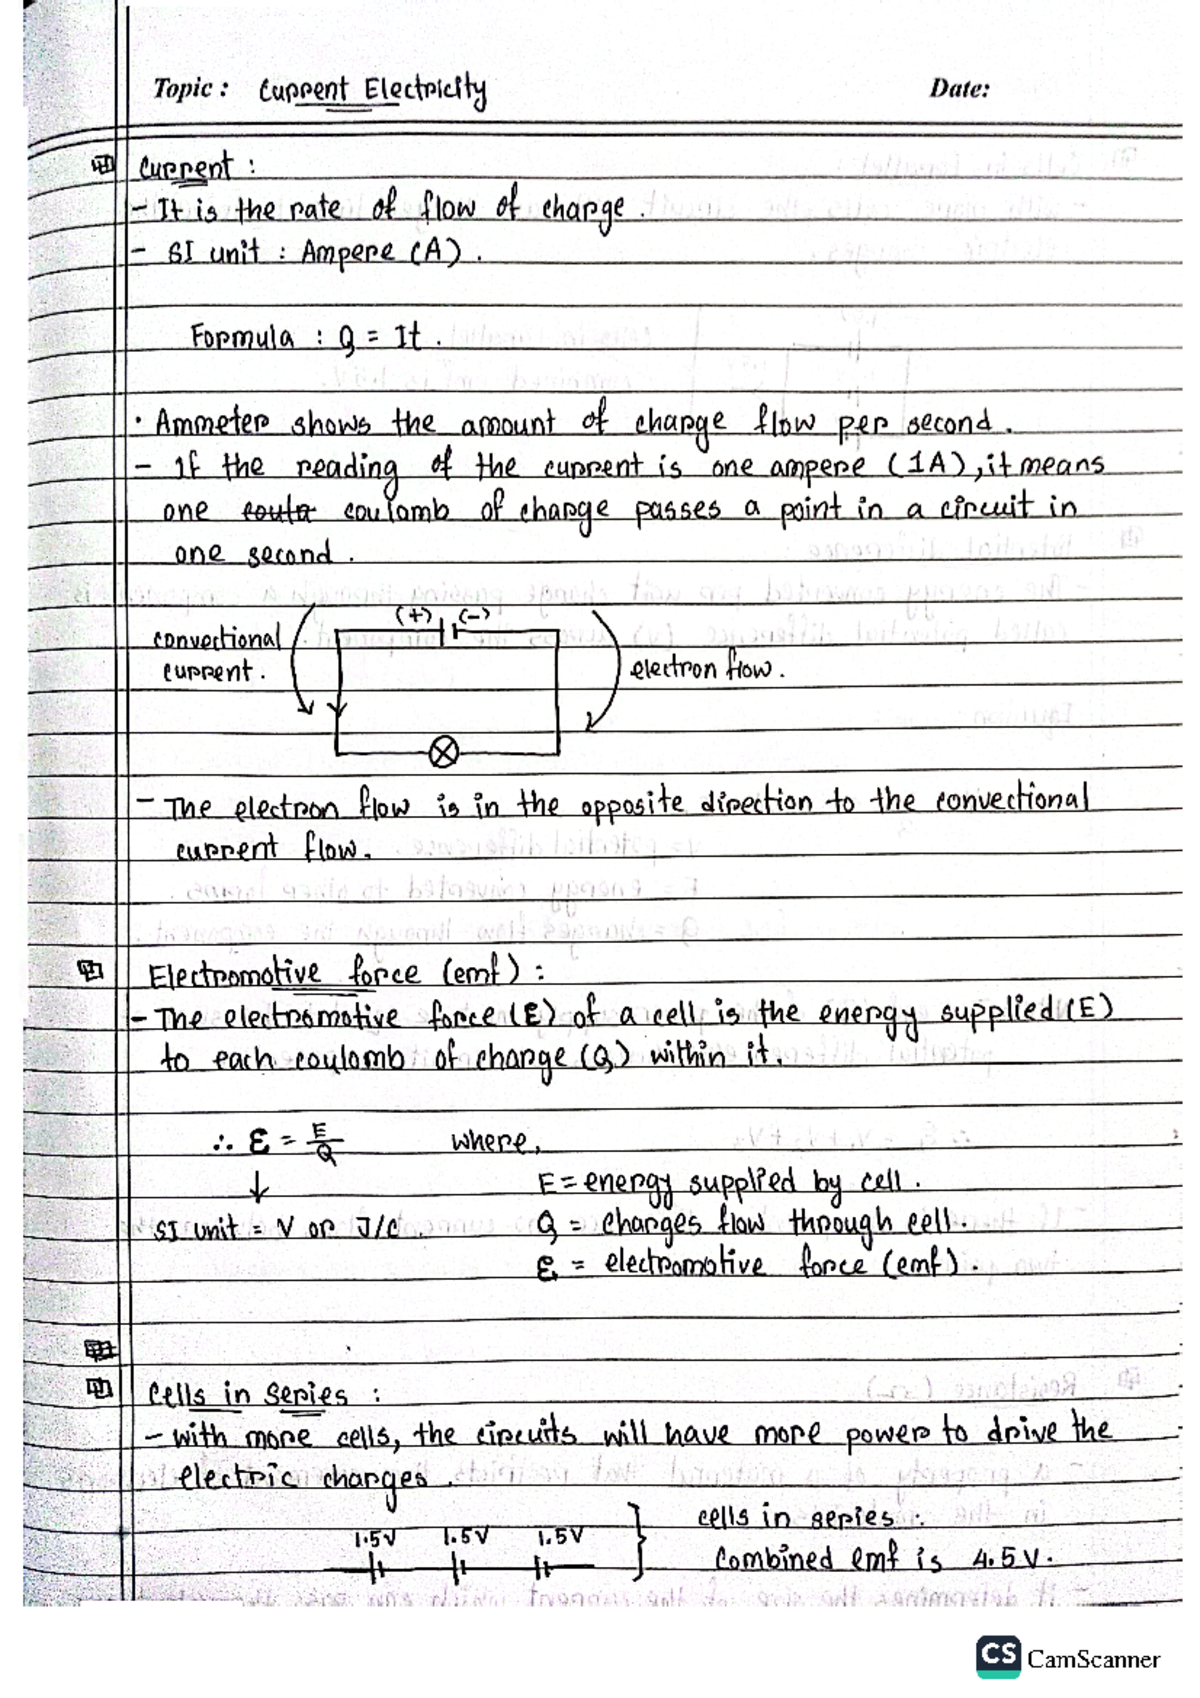 Topic : Current Electricity Date:
Current :
- It is the rate of flow of charge .
- SI unit : Ampere (A) .
Formula : Q = It .
· Ammeter shows the amount of charge flow per second .
- If the reading of the current is one ampere (1A), it means
one coulomb of charge passes a point in a circuit in
one second .
(+) (-)
convectional
current .
electron flow .
- The electron flow is in the opposite direction to the convectional
current flow.
Electromotive force (emf) :
- The electromotive force (ε) of a cell is the energy supplied (E)
to each coulomb of charge (Q) within it.
∴ ε = E/Q where,
↓ E = energy supplied by cell .
SI unit = V or J/C . Q = charges flow through cell .
ε = electromotive force (emf) .
Cells in series :
- with more cells, the circuits will have more power to drive the
electric charges .
1.5V 1.5V 1.5V } cells in series :
Combined emf is 4.5V.
CS CamScanner